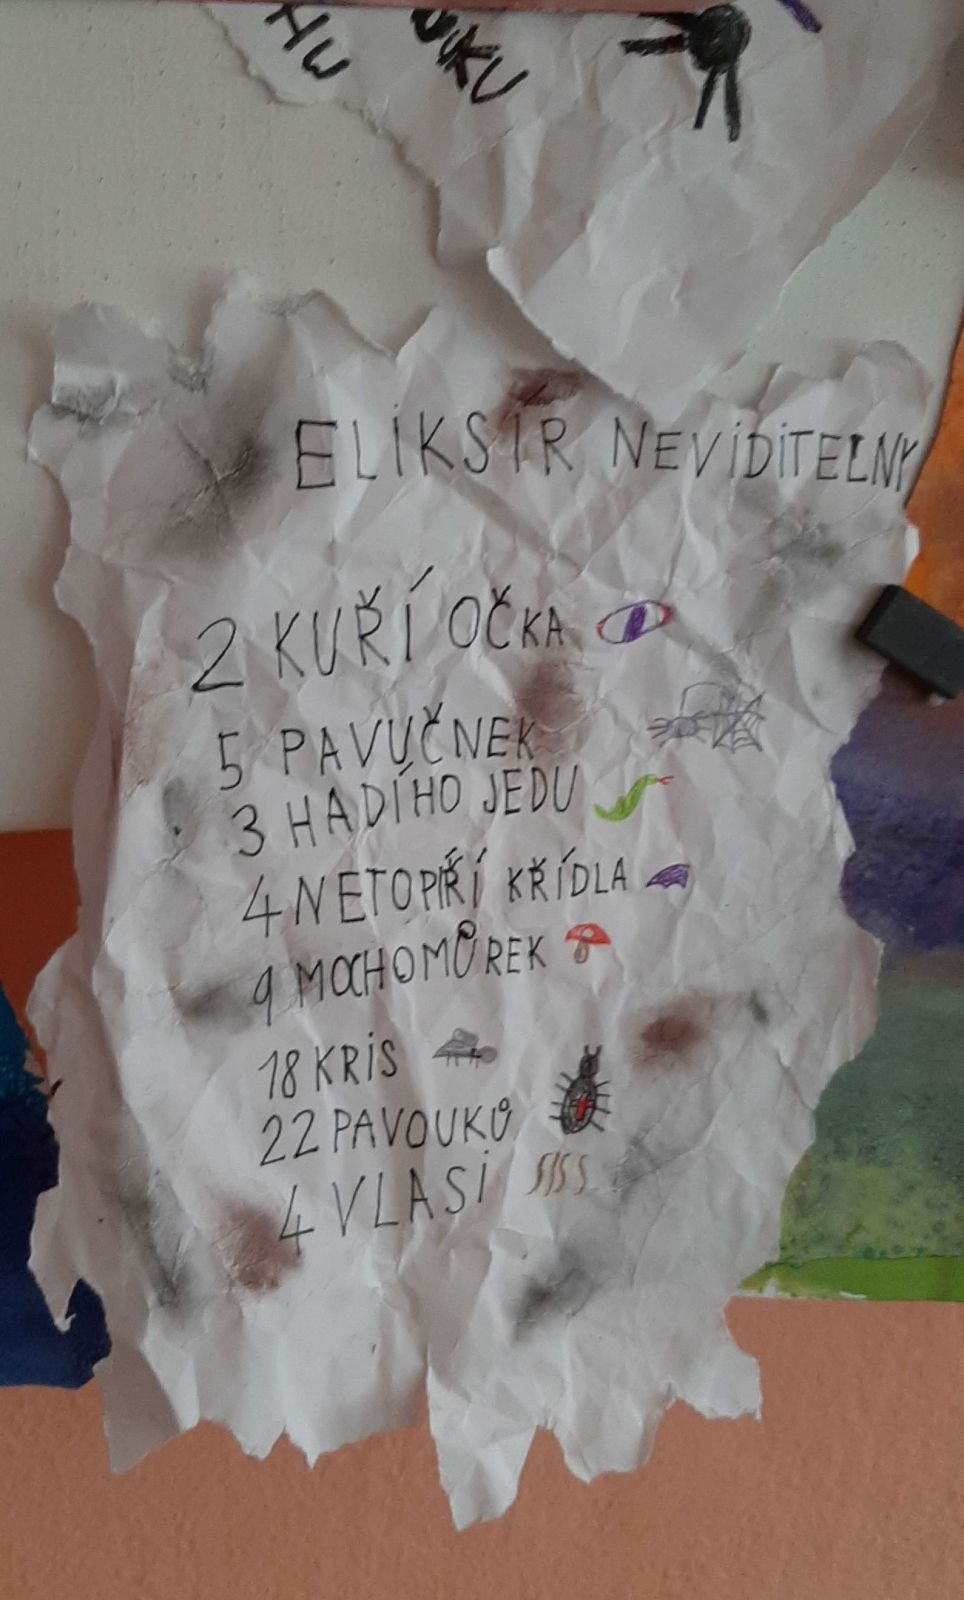 ELIKSÍR NEVIDITELNÝ
2 KUŘÍ OČKA
5 PAVUČNEK
3 HADÍHO JEDU
4 NETOPÍŘÍ KŘÍDLA
9 MOCHOMŮREK
18 KRIS
22 PAVOUKŮ
4 VLASI